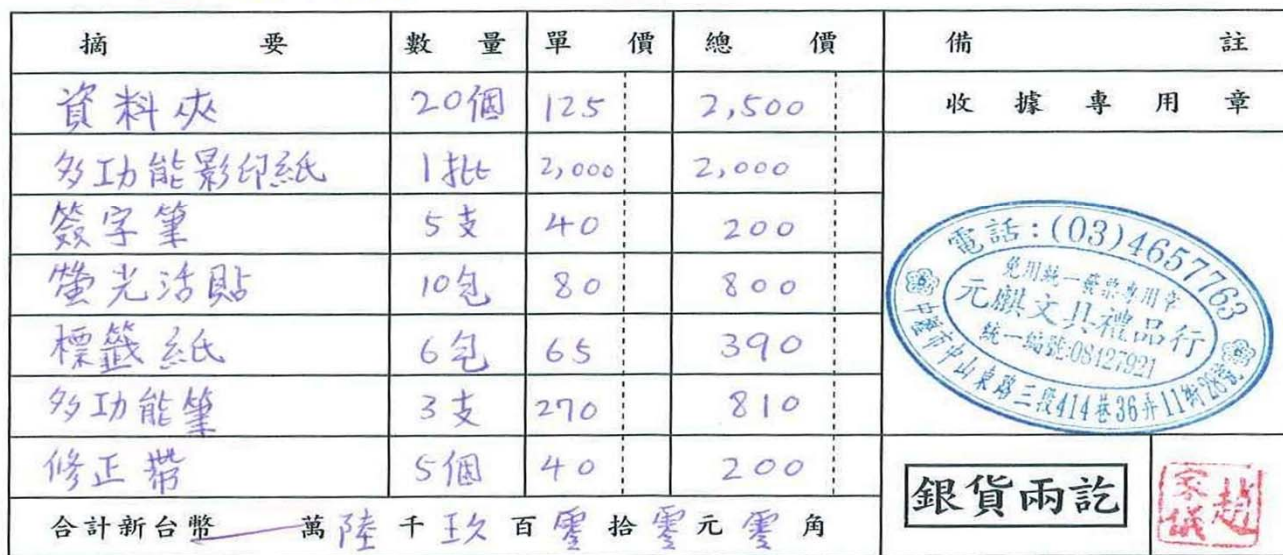 摘要 數量 單價 總價 備註
資料夾 20個 125 2,500 收據專用章
多功能影印紙 1批 2,000 2,000
簽字筆 5支 40 200
螢光活貼 10包 80 800
標籤紙 6包 65 390
多功能筆 3支 270 810
修正帶 5個 40 200
合計新台幣 萬陸千玖百零拾零元零角
電話:(03)4657763
免用統一發票專用章
元麒文具禮品行
統一編號:08127921
中壢市中山東路三段414巷36弄11街28號
銀貨兩訖
趙家儀